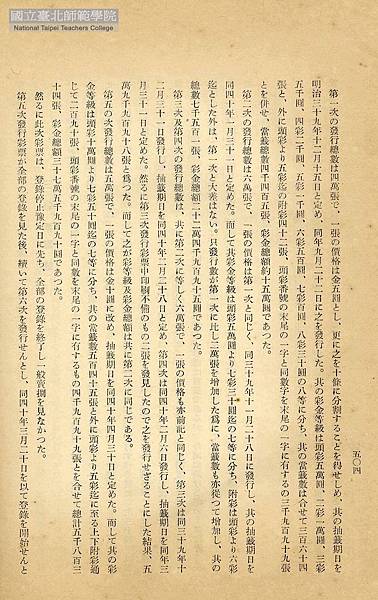 國立臺北師範學院
National Taipei Teachers College
五〇四
第一次の發行總數は四萬張で、一張の價格は金五圓とし、更に之を十條に分割することを得せしめ、其の抽籤期日を
明治三十九年十二月十五日と定め、同年九月二十二日に之を發賣した。其の彩金等級は頭彩五萬圓、二彩一萬圓、三彩
五千圓、四彩二千圓、五彩一千圓、六彩五百圓、七彩百圓、八彩三十圓の八等に分ち、其の當籤數は合せて三百六十四
張と、外に頭彩より五彩迄の附彩四十二張、頭彩番號の末尾の一字と同數字を末尾の一字に有するもの三千九百九十九張
とを併せ、當籤總數四千四百五張、彩金總額約十五萬圓であつた。
第二次の發行總數は六萬張で、一張の價格は第一次と同じく、同三十九年十一月二十八日に發行し、其の抽籤期日を
同四十年一月三十一日と定めた。而して其彩金等級は頭彩五萬圓より七彩三十圓迄の七等に分ち、附彩は頭彩より六彩
迄とした外は、第一次と大差はない。只發行數が第一次に比し二萬張を增加した爲に、當籤數も亦從つて增加し、其の
總數七千五百一張、彩金總額二十二萬四千九百九十五圓であつた。
第三次及第四次の發行總數は、共に第二次に等しく六萬張で、一張の價格も亦前記と同じく、第三次は同三十九年十
二月三十一日發行し、抽籤期日を同四十年二月二十八日と定め、第四次は同四十年二月六日發行し、抽籤期日を同年三
月三十一日と定めた。然るに第三次發行彩票中印刷不備のもの二張を發見したので之を發行せざることにした結果、五
萬九千九百九十八張と爲つた。而して之が彩等級及彩金總額は共に第二次に同じである。
第五次の發行總數は五萬張で、一張の價格は金十圓に改め、抽籤期日を同四十年四月三十日と定めた。而して其の彩
金等級は頭彩十萬圓より七彩五十圓迄の七等に分ち、其の當籤數五百四十五張と外に頭彩より五彩迄に至る上下附彩通
じて二百九十張、頭彩番號の末尾の一字と同數を末尾の一字に有するもの四千九百九十九張とを合せて總計五千八百三
十四張、彩金總額三十七萬五千九百五十圓であつた。
然るに此次彩票は、登錄停止豫定日に先ち、全部の登錄を終了し一般賣捌を見なかつた。
第五次發行彩票が全部の登錄を見た後、續いて第六次を發行せんとし、同四十年三月二十日を以て登錄を開始せんと